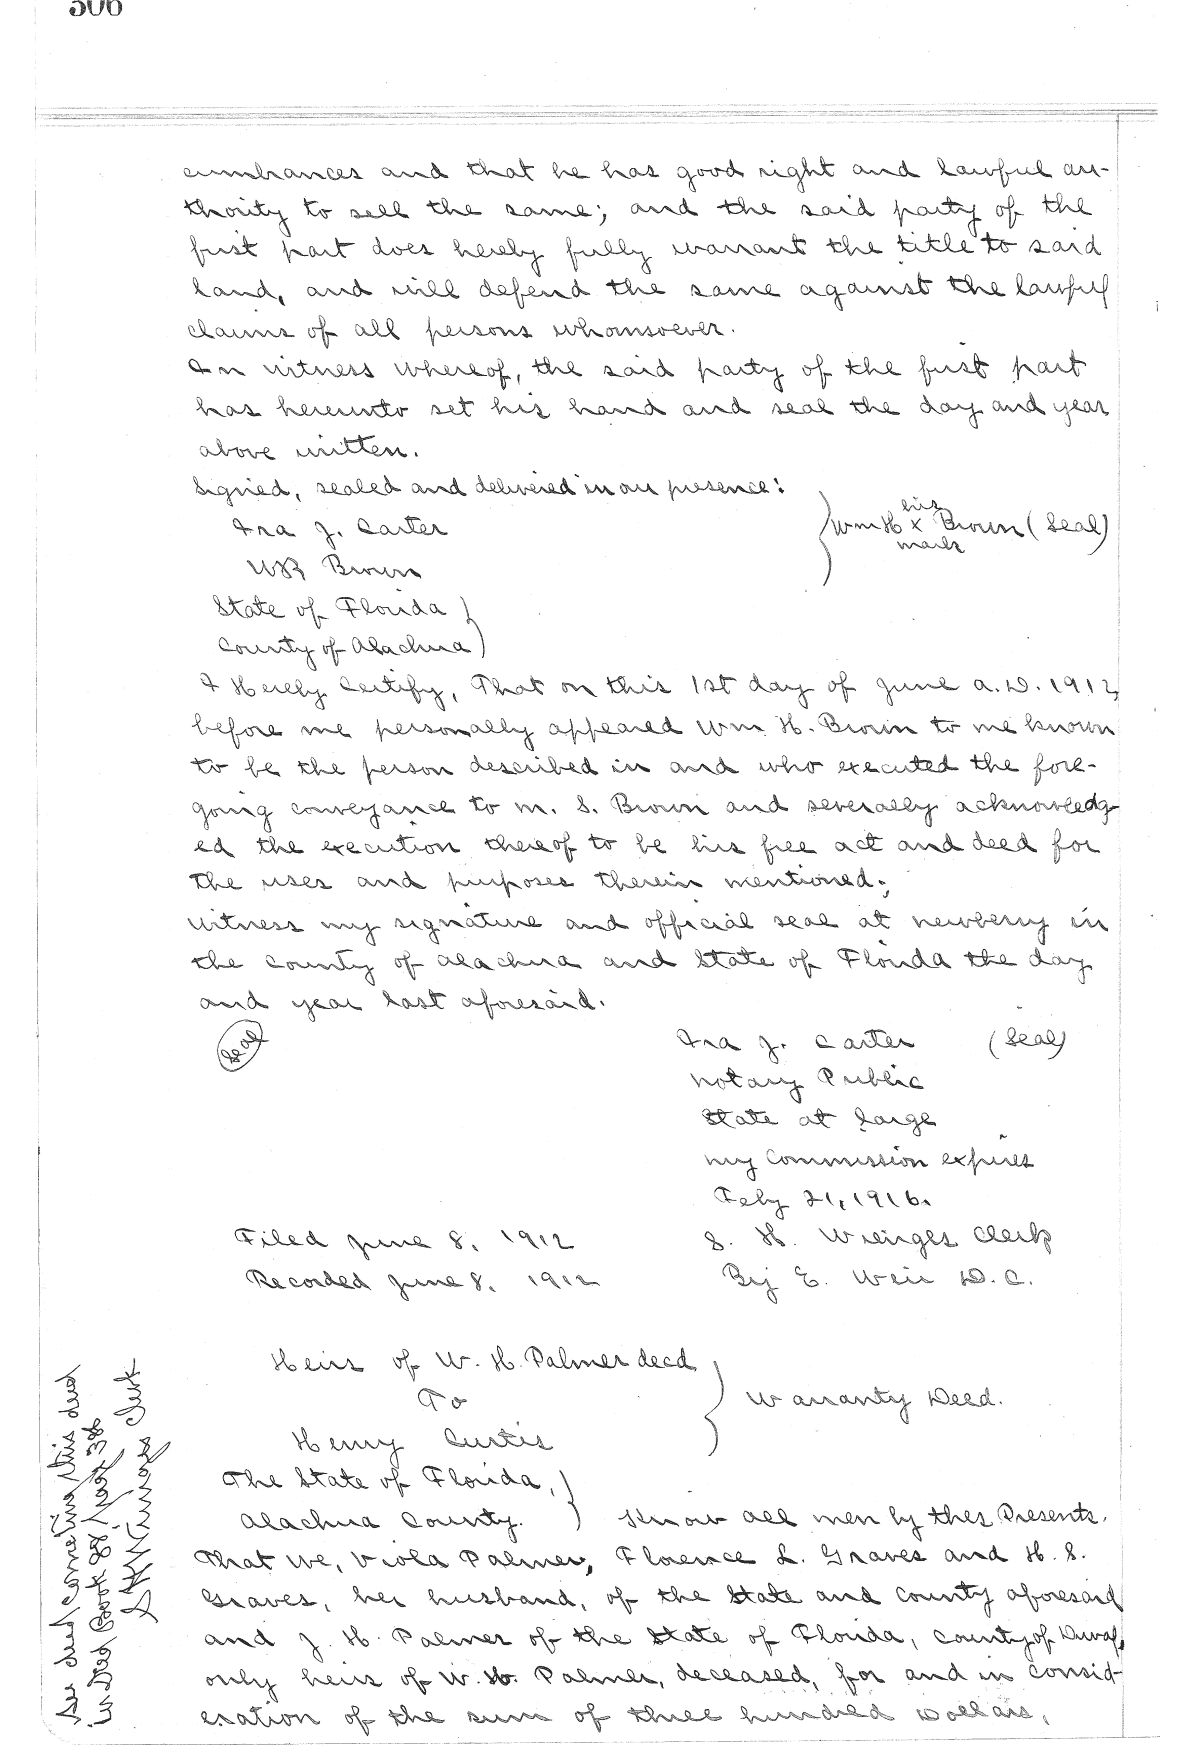 506
cumbrances and that he has good right and lawful au-
thority to sell the same; and the said party of the
first part does hereby fully warrant the title to said
land, and will defend the same against the lawful
claims of all persons whomsoever.
In witness whereof, the said party of the first part
has hereunto set his hand and seal the day and year
above written.
Signed, sealed and delivered in our presence:
Ira J. Carter
his
Wm H X Brown (Seal)
mark
WR Brown
State of Florida
County of Alachua
I Hereby Certify, That on this 1st day of June A.D. 1912
before me personally appeared Wm. H. Brown to me known
to be the person described in and who executed the fore-
going conveyance to M. S. Brown and severally acknowledg-
ed the execution thereof to be his free act and deed for
the uses and purposes therein mentioned;
Witness my signature and official seal at Newberry in
the County of Alachua and State of Florida the day
and year last aforesaid.
Seal
Ira J. Carter (Seal)
Notary Public
State at Large
My Commission expires
Feby 21, 1916.
Filed June 8, 1912 S. H. Wienges Clerk
Recorded June 8, 1912 By E. Weir D.C.
Heirs of W. H. Palmer decd
To
Warranty Deed.
Henry Curtis
The State of Florida,
Alachua County. Know all men by thes Presents.
That we, Viola Palmer, Florence L. Graves and H. S.
Graves, her husband, of the State and County aforesaid
and J. H. Palmer of the State of Florida, County of Duval,
only heirs of W. H. Palmer, deceased, for and in consid-
eration of the sum of three hundred Dollars,
See deed correcting this deed
in Deed Book 88 Page 386
S H Wienges Clerk